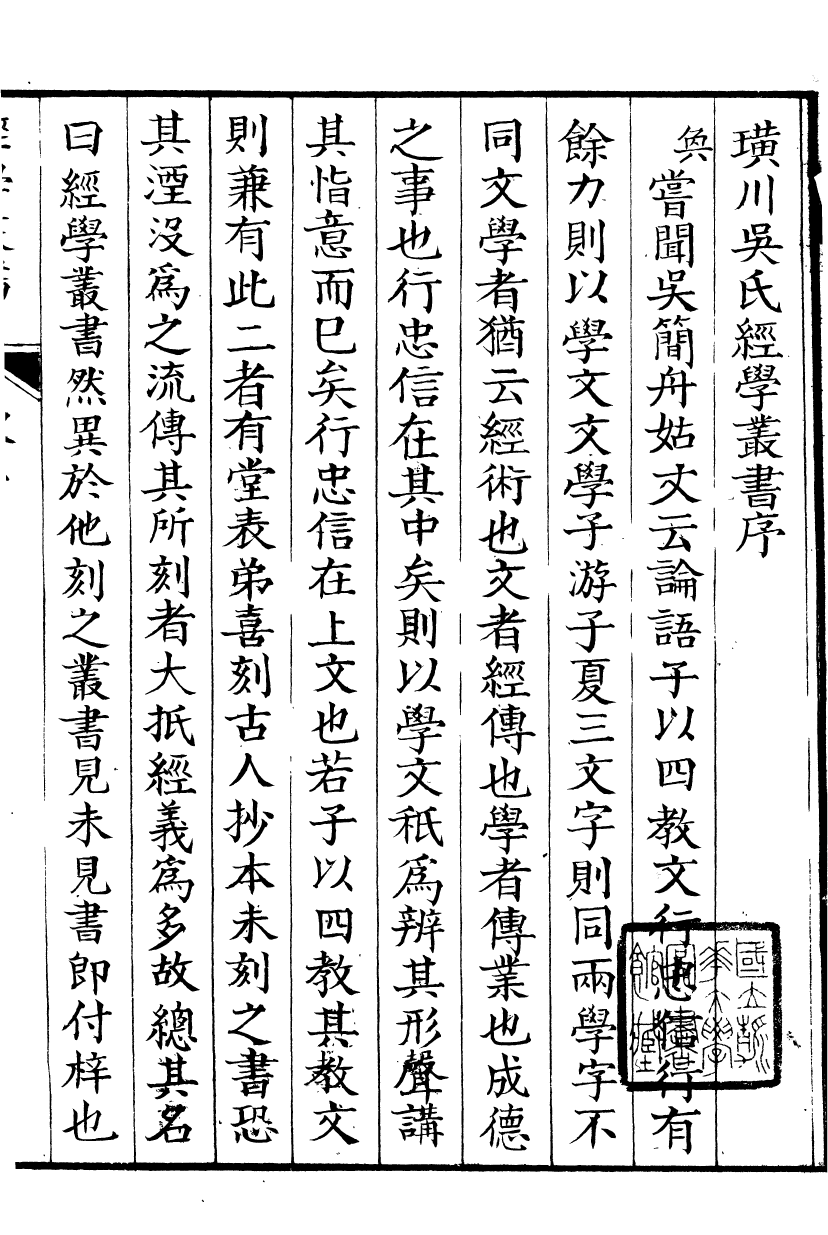 璜川吳氏經學叢書序
奐嘗聞吳簡舟姑丈云論語子以四教文行忠信行有
餘力則以學文文學子游子夏三文字則同兩學字不
同文學者猶云經術也文者經傳也學者傳業也成德
之事也行忠信在其中矣則以學文秖為辨其形聲講
其恉意而已矣行忠信在上文也若子以四教其教文
則兼有此二者有堂表弟喜刻古人抄本未刻之書恐
其湮沒為之流傳其所刻者大抵經義為多故總其名
曰經學叢書然異於他刻之叢書見未見書即付梓也
國立清華大學圖書館藏